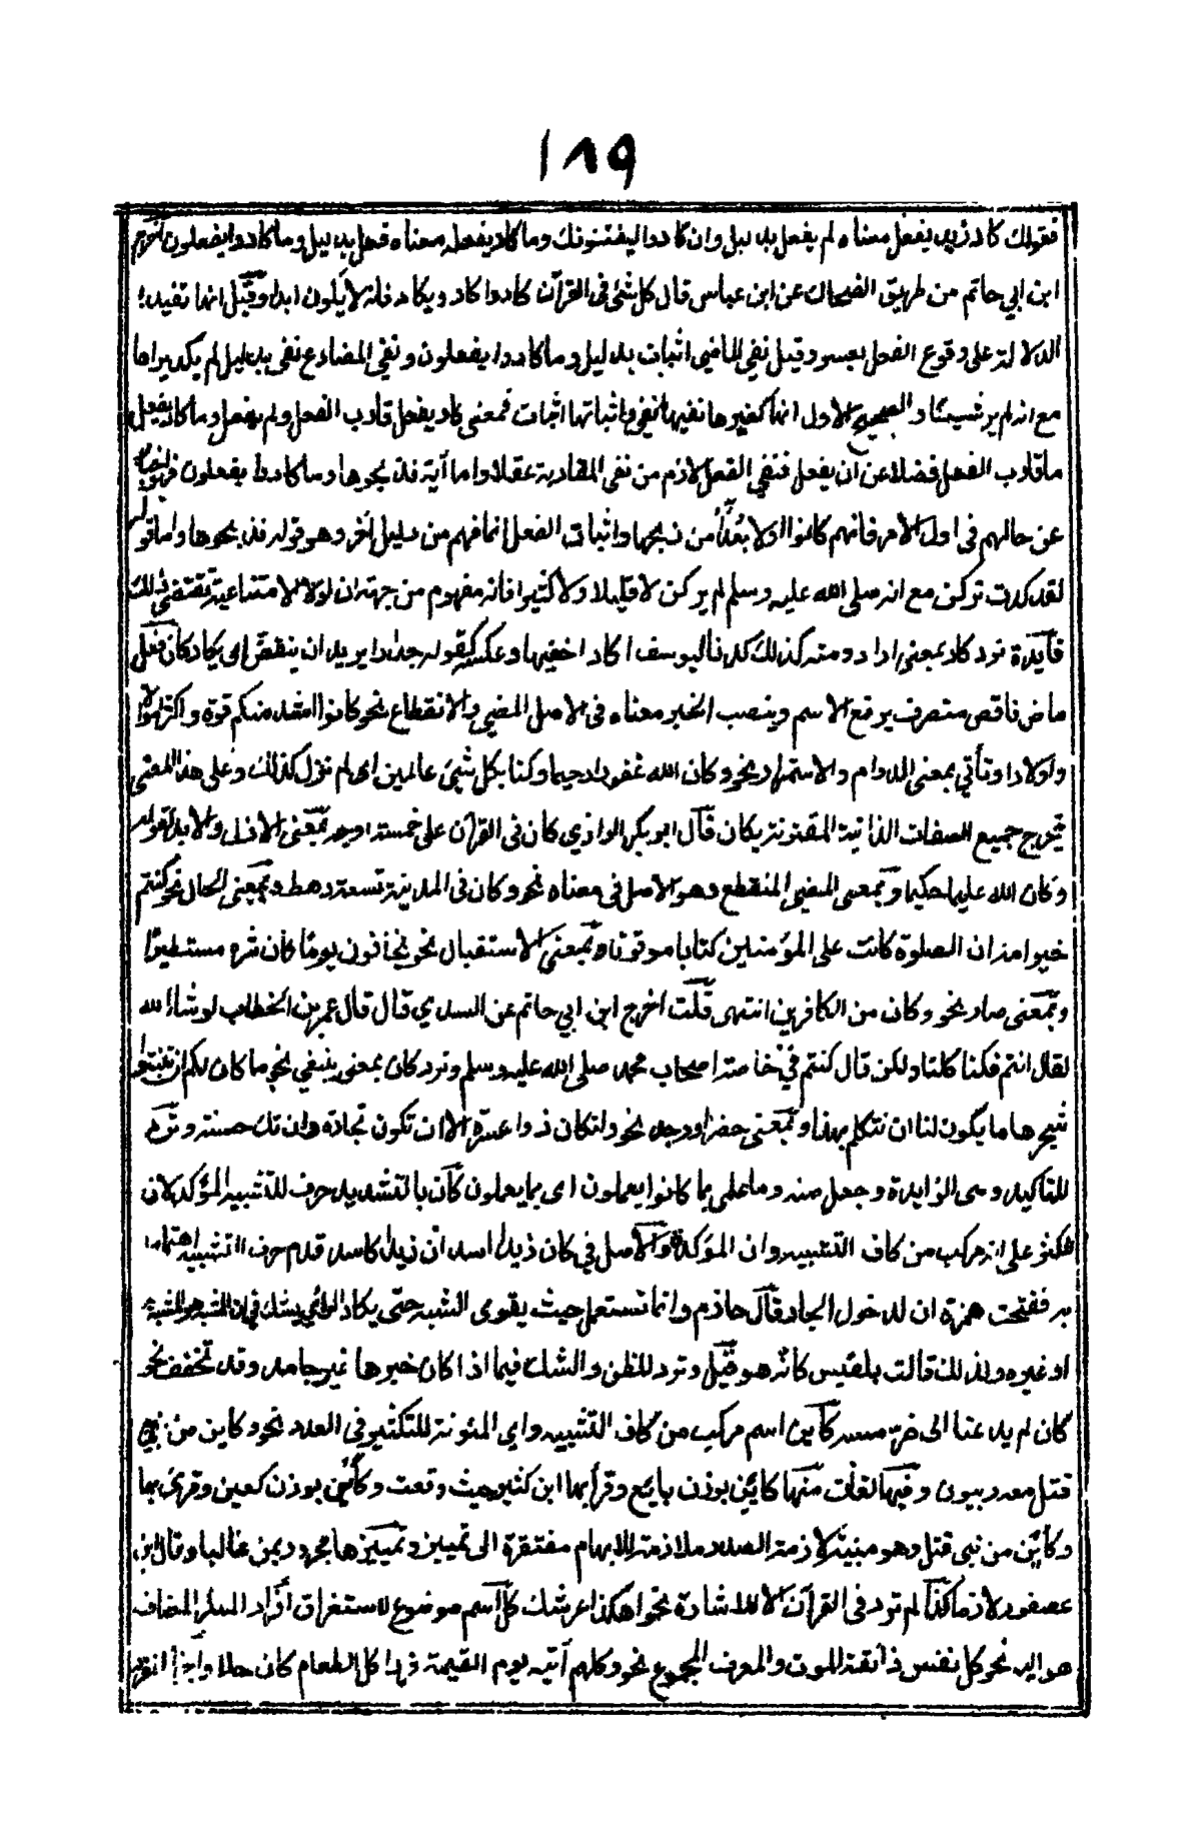 ١٨٩
فقولك كاد زيد يفعل معناه لم يفعل بدليل وان كادوا ليفتنونك وما كاد يفعل معناه فعل بدليل وما كادوا يفعلون اخرج
ابن ابي حاتم من طريق الضحاك عن ابن عباس قال كل شئ فى القرآن كادوا كاد ويكاد فانه لا يكون ابدا وقيل انها تفيد
الدلالة على وقوع الفعل بعسر وقيل نفى الماضى اثبات بدليل وما كادوا يفعلون ونفى المضارع نفى بدليل لم يكد يراها
مع انه لم ير شيئا والصحيح الاول انها كغيرها نفيها نفى واثباتها اثبات فمعنى كاد يفعل قارب الفعل ولم يفعل وما كاد يفعل
ما قارب الفعل فضلا عن ان يفعل فنفى الفعل لازم من نفى المقاربة عقلا واما آية فذبحوها وما كادوا يفعلون فهو اخبار
عن حالهم فى اول الامر فانهم كانوا اولا بُعَداً من ذبحها واثبات الفعل انما فهم من دليل آخر وهو قوله فذبحوها واما قوله
لقد كدت تركن مع انه صلى الله عليه وسلم لم يركن لا قليلا ولا كثيرا فانه مفهوم من جهة ان لولا الامتناعية تقتضى ذلك
فآيدة ترد كاد بمعنى اراد ومنه كذلك كدنا ليوسف اكاد اخفيها وعكسه كقوله جدارا يريد ان ينقض اى يكاد كان فعل
ماض ناقص متصرف يرفع الاسم وينصب الخبر معناه فى الاصل المضى والانقطاع نحو كانوا اشد منكم قوة واكثر اموالا
واولادا وتأتي بمعنى الدوام والاستمرار نحو وكان الله غفورا رحيما وكنا بكل شئ عالمين اى لم نزل كذلك وعلى هذا المعنى
تتخرج جميع الصفات الذاتية المقترنة بكان قال ابو بكر الرازي كان فى القرآن على خمسة اوجه بمعنى الازل والابد كقوله
وكان الله عليما حكيما وبمعنى المضى المنقطع وهو الاصل فى معناه نحو وكان فى المدينة تسعة رهط وبمعنى الحال نحو كنتم
خير امة ان الصلوة كانت على المؤمنين كتابا موقوتا وبمعنى الاستقبال نحو يخافون يومًا كان شره مستطيرًا
وبمعنى صار نحو وكان من الكافرين انتهى قلت اخرج ابن ابي حاتم عن السدي قال قال عمر بن الخطاب لو شاء الله
لقال انتم فكنا كلنا ولكن قال كنتم فى خاصة اصحاب محمد صلى الله عليه وسلم وترد كان بمعنى ينبغي نحو ما كان لكم ان تنبتوا
شجرها ما يكون لنا ان نتكلم بهذا وبمعنى حضر او وجد نحو وان كان ذو عسرة الا ان تكون تجارة وان تك حسنة وترد
للتاكيد وهى الزايدة وجعل منه وما علمى بما كانوا يعملون اى بما يعملون كأن بالتشديد حرف للتشبيه المؤكد لان
الاكثر على انه مركب من كاف التشبيه وان المؤكدة والاصل في كان زيدا اسد ان زيدا كاسد قدم حرف التشبيه اهتماما
به ففتحت همزة ان لدخول الجار قال حازم وانما تستعمل حيث يقوى الشبه حتى يكاد الرائي يشك في ان المشبه هو المشبه به
او غيره ولذلك قالت بلقيس كانه هو قيل وترد للظن والشك فيما اذا كان خبرها غير جامد وقد تخفف نحو
كان لم يدعنا الى ضر مسه كآين اسم مركب من كاف التشبيه واي المنونة للتكثير فى العدد نحو وكاين من نبى
قتل معه ربيون وفيها لغات منها كائن بوزن بايع وقرأ بها ابن كثير حيث وقعت وكأين بوزن كعين وقرئ بها
وكأين من نبى قتل وهى مبنية لازمة الصدر ملازمة للابهام مفتقرة الى تمييز وتمييزها مجرور بمن غالبا وقال ابن
عصفور لازما كذا لم ترد فى القرآن الا للاشارة نحو اهكذا عرشك كل اسم موضوع لاستغراق افراد المنكر المضاف
هو اليه نحو كل نفس ذائقة الموت والمعرف المجموع نحو وكلهم آتيه يوم القيمة فردا كل الطعام كان حلا واجزا المفرد